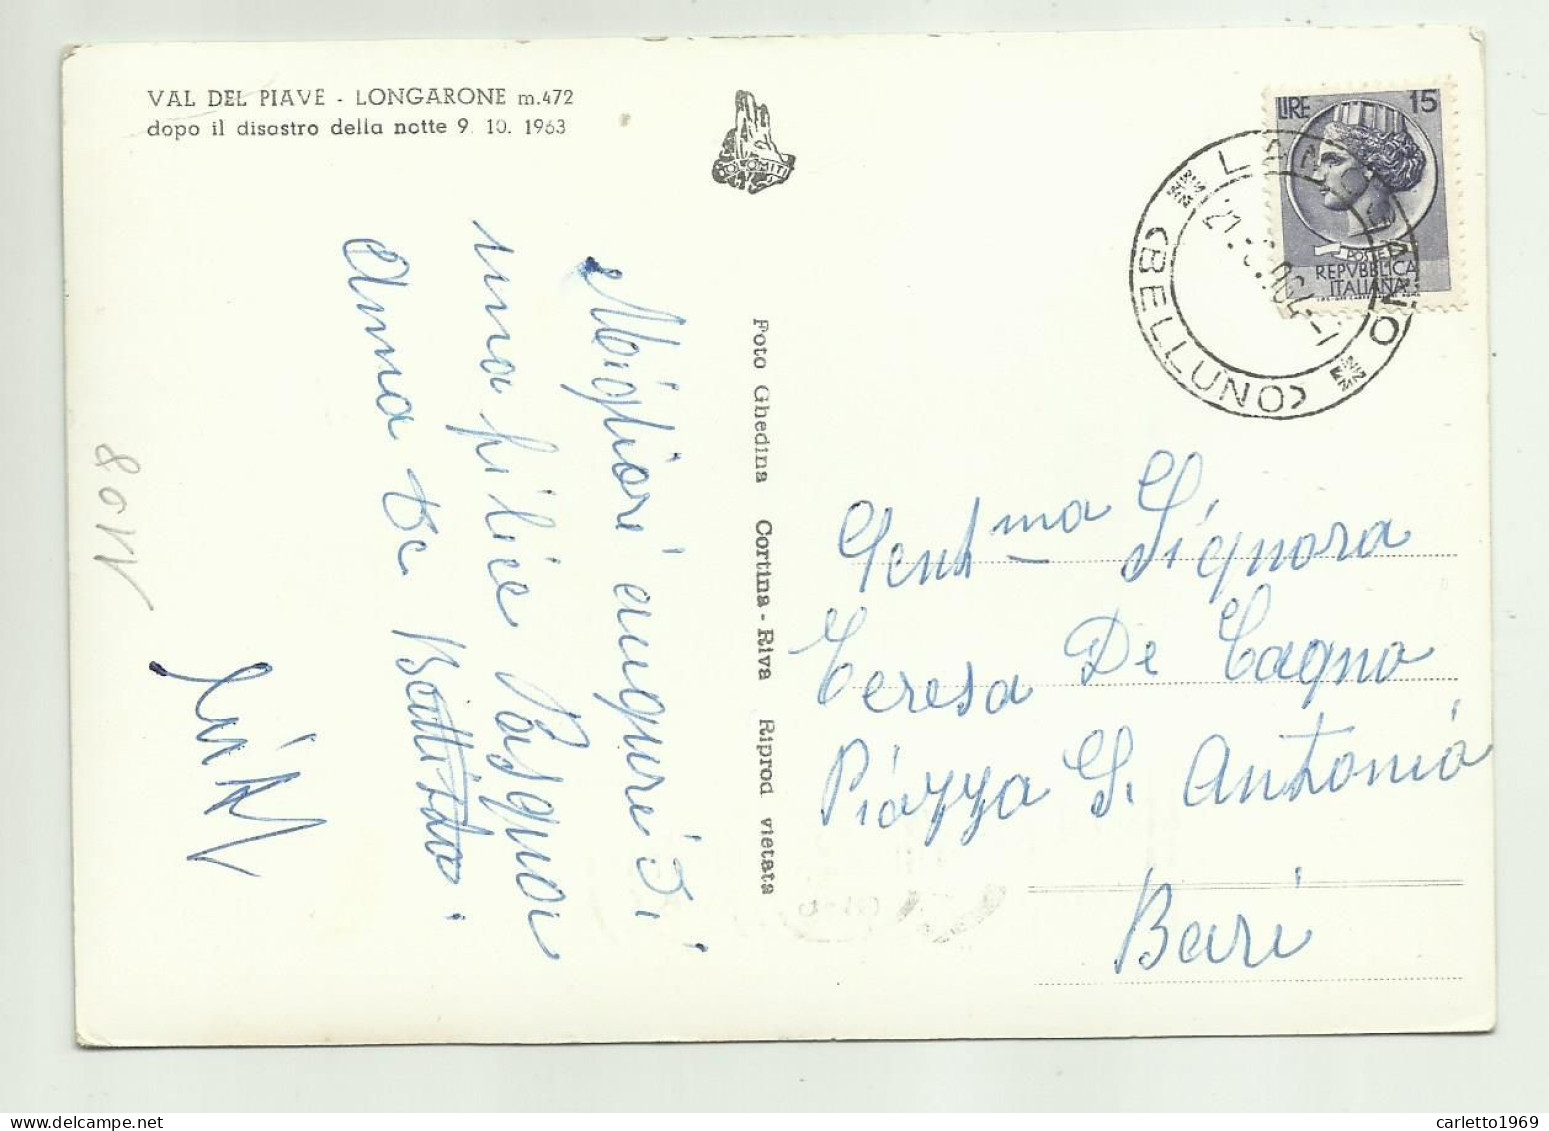 VAL DEL PIAVE - LONGARONE m.472
dopo il disastro della notte 9. 10. 1963
DOLOMITI
LIRE 15
POSTE
REPVBBLICA
ITALIANA
(BELLUNO)
Migliori auguri di
una felice Pasqua
Anna De Battista.
Foto Ghedina Cortina - Riva Riprod vietata
Gent.ma Signora
Teresa De Cagno
Piazza S. Antonio
Bari
8011
carletto1969